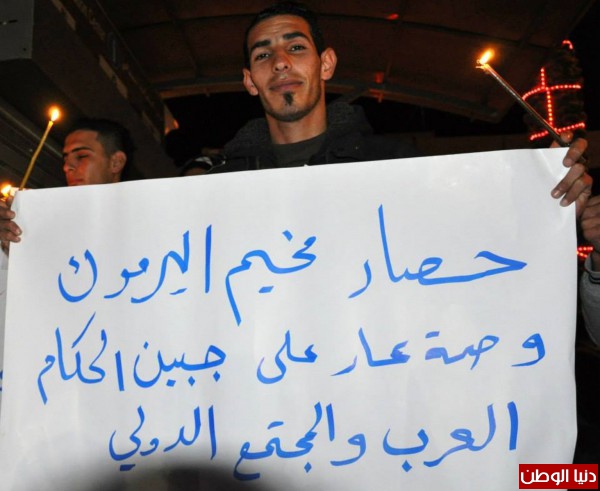 حصار مخيم اليرموك
وصمة عار على جبين الحكام
العرب والمجتمع الدولي
دنيا الوطن